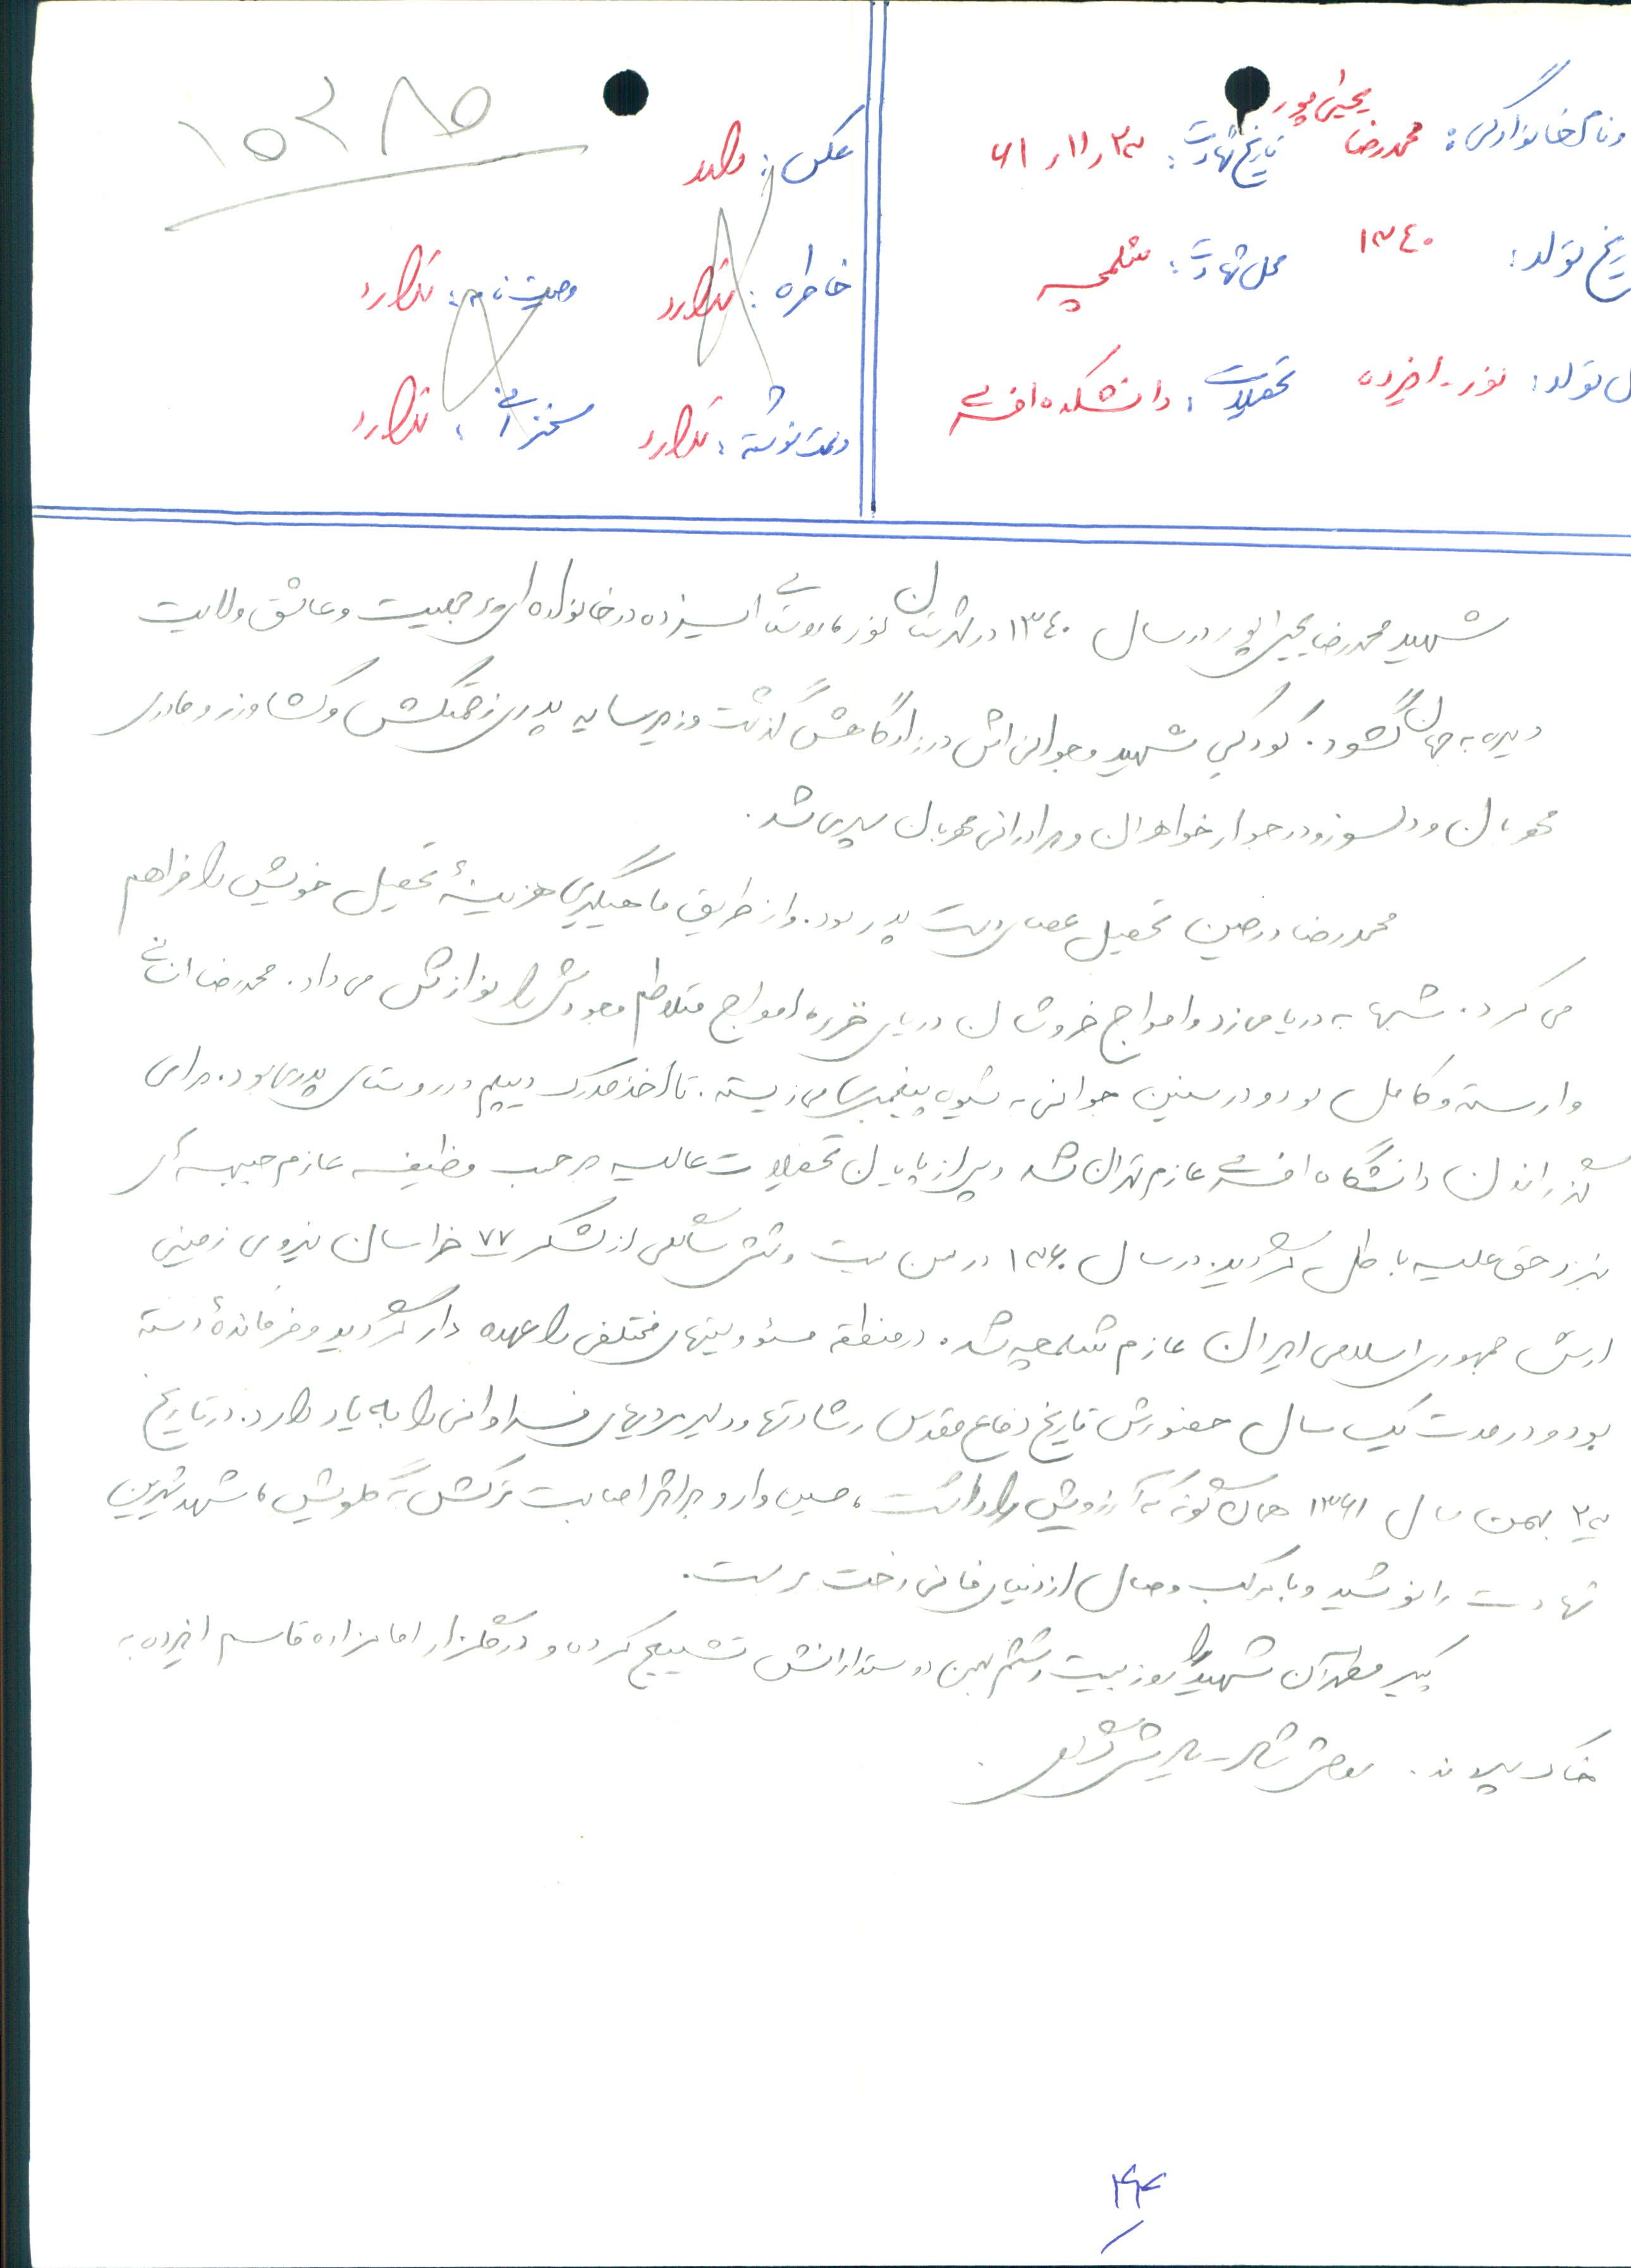 و نام خانوادگی: محمدرضا یحیی پور تاریخ شهادت:
ریخ تولد: ۱۳۴۰ محل شهادت: شلمچه
ل تولد: نور - ایزده تحصیلات: دانشکده افسری
۱۵۳۸۵
عکس: دارد
خاطره: ندارد وصیت نامه: ندارد
دست نوشته: ندارد سخنرانی: ندارد
شهید محمدرضا یحیی پور در سال ۱۳۴۰ در شهرستان نور، روستای ایزده در خانواده ای پر جمعیت و عاشق ولایت
دیده به جهان گشود. کودکی شهید و جوانی اش در زادگاهش گذشت و زیر سایه پدری زحمتکش و کشاورز و مادری
مهربان و دلسوز و در جوار خواهران و برادرانی مهربان سپری شد.
محمدرضا در حین تحصیل عصای دست پدر بود. و از طریق ماهیگیری هزینۀ تحصیل خویش را فراهم
می کرد. شبها به دریا می زد و امواج خروشان دریای خزر، امواج متلاطم وجودش را نوازش می داد. محمدرضا انسانی
وارسته و کامل بود و در سنین جوانی به شیوه پیغمبران می زیسته. تا اخذ مدرک دیپلم در روستای پدری بود. برای
گذراندن دانشگاه افسری عازم تهران شد و پس از پایان تحصیلات عالیه بر حسب وظیفه عازم جبهه های
نبرد حق علیه باطل گردید. در سال ۱۳۶۰ در سن بیست و شش سالگی از لشکر ۷۷ خراسان نیروی زمینی
ارتش جمهوری اسلامی ایران عازم شلمچه شد. در منطقه مسئولیتهای مختلفی را عهده دار گردید و فرماندۀ دسته
بود و در مدت یک سال حضورش تاریخ دفاع مقدس رشادتها و دلیر مردیهای فراوانی را به یاد دارد. در تاریخ
بهمن سال ۱۳۶۱ همان گونه که آرزویش را داشت، حسین وار و بر اثر اصابت ترکش به گلویش، شهد شیرین
شهادت را نوشید و با مرکب وصال از دنیای فانی رخت بربست.
پیکر مطهر آن شهید را روز بیست و بهمن دوستدارانش تشییع کرده و در گلزار امامزاده قاسم ایزده به
خاک سپردند. روحش شاد - یادش گرامی.
۴۴